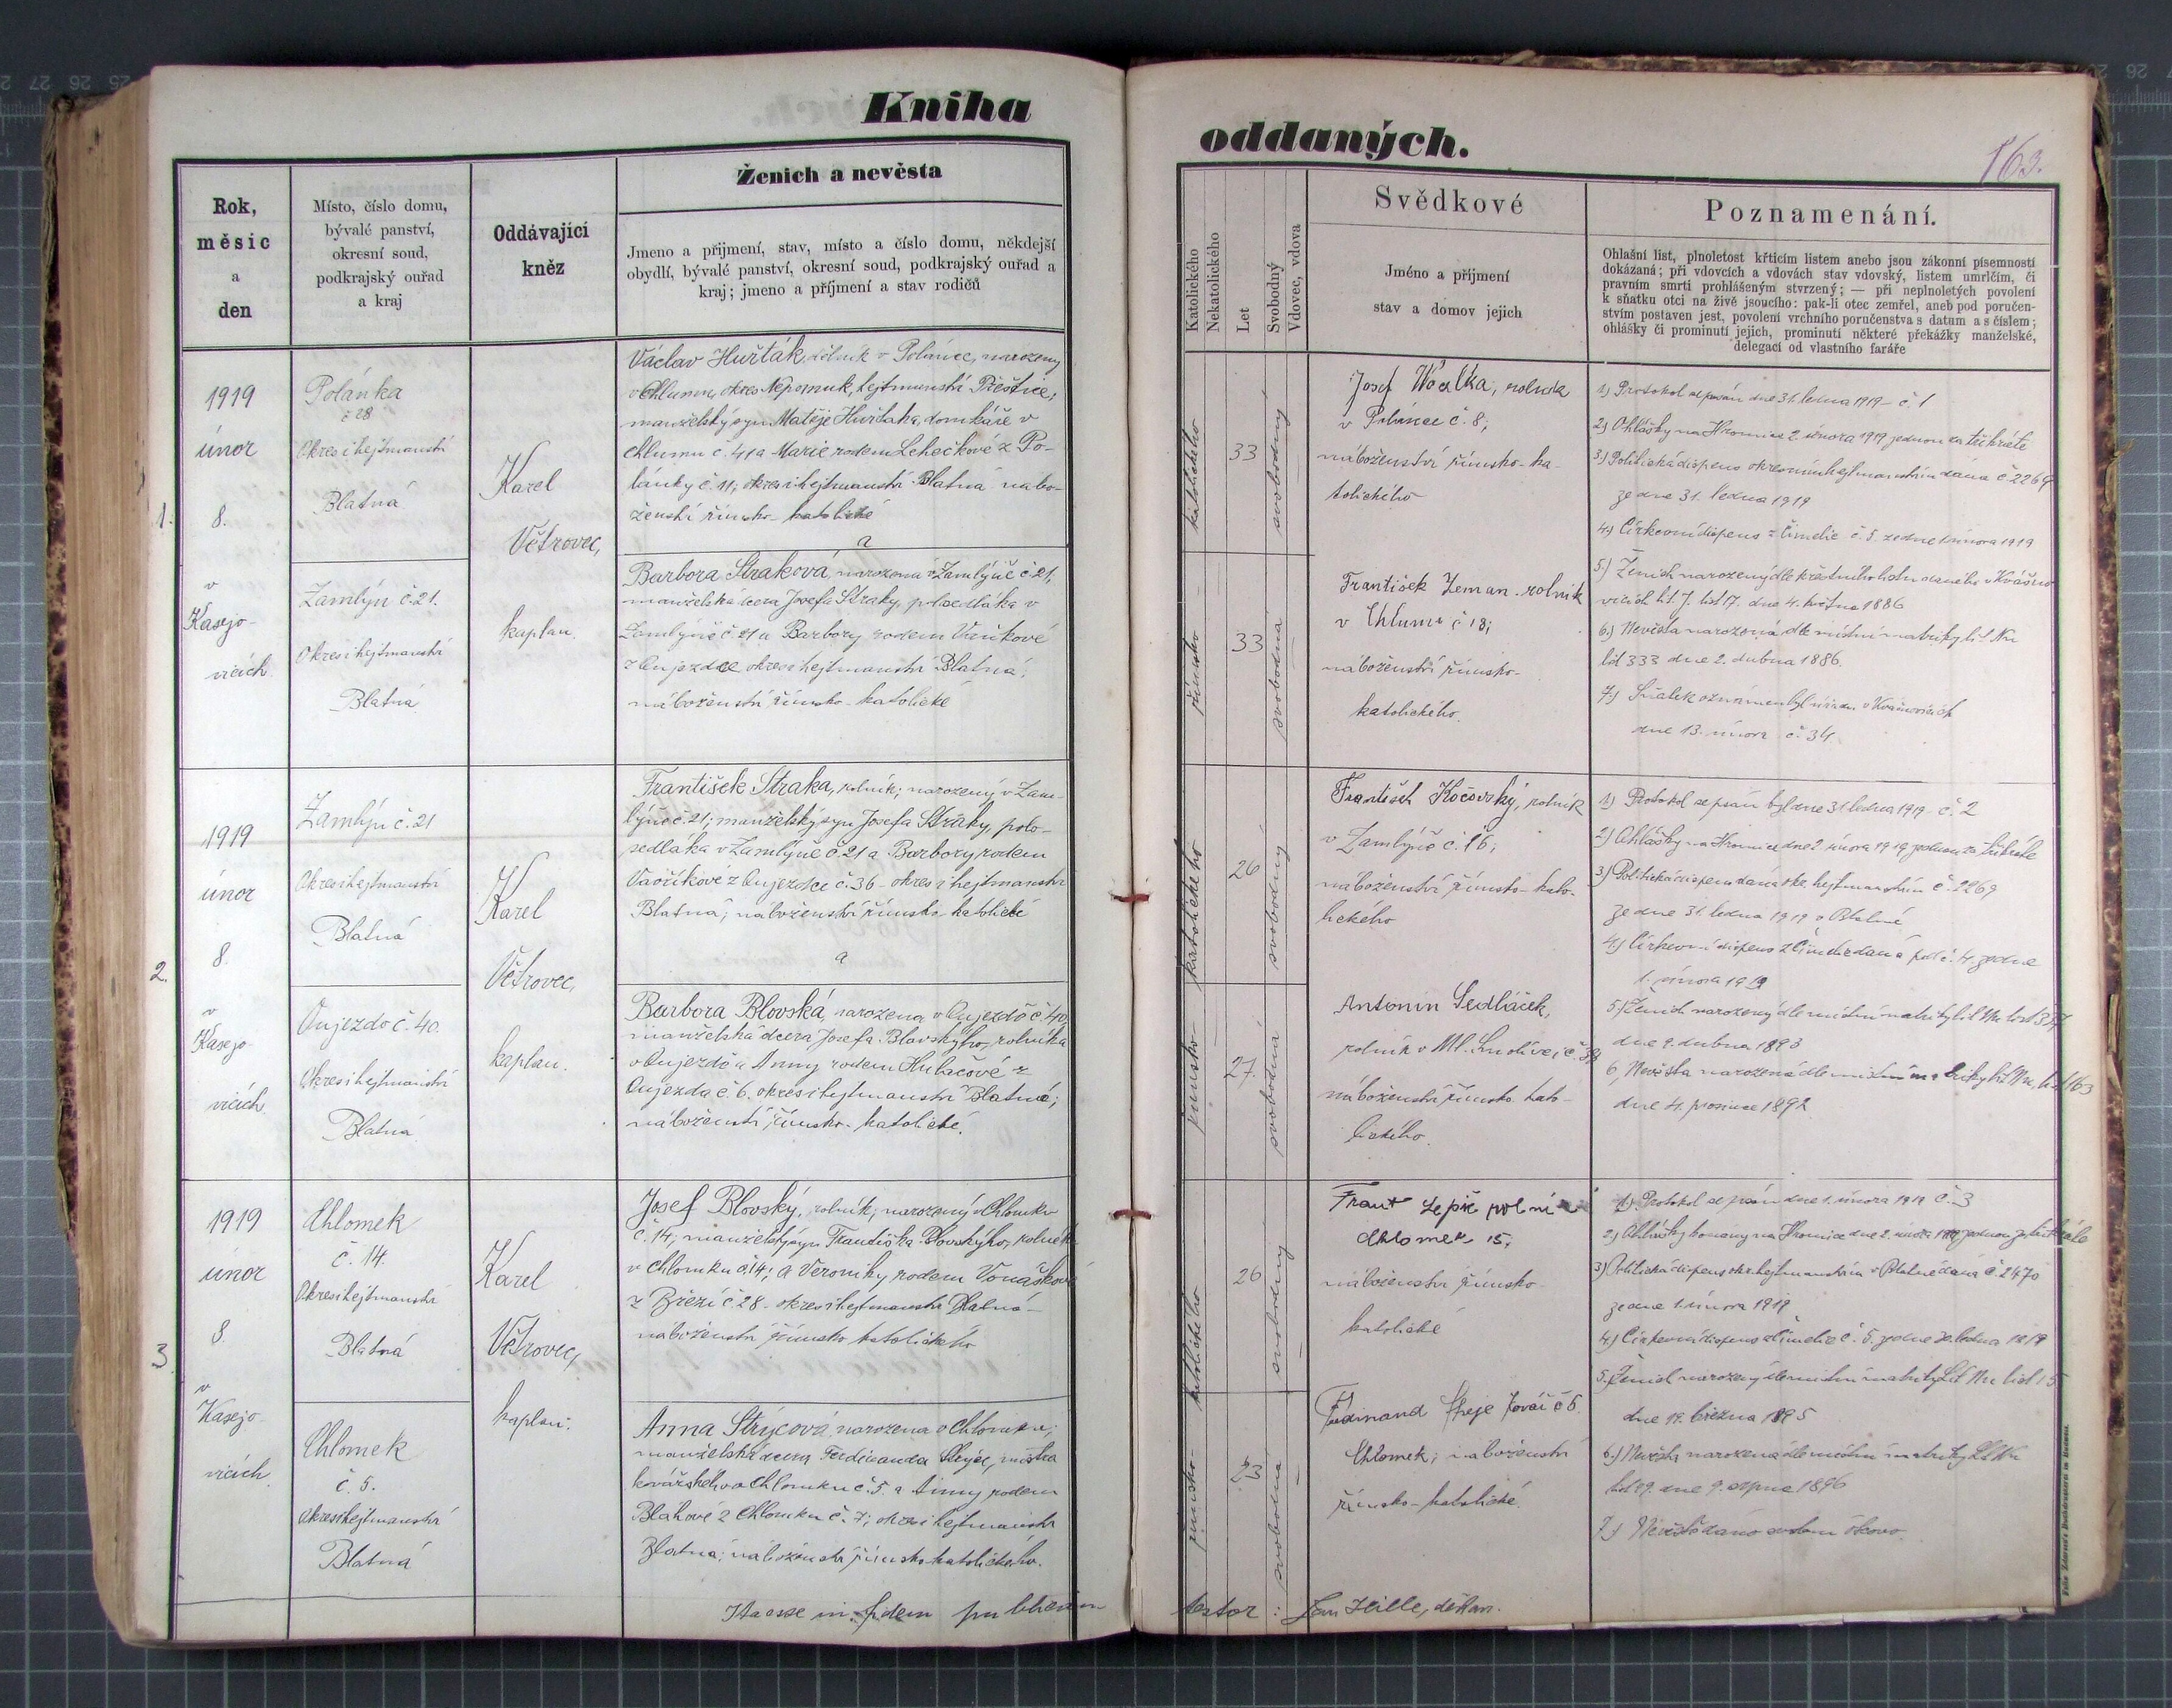 Kniha
oddaných.
163.
Rok,
měsíc
a
den
Místo, číslo domu,
bývalé panství,
okresní soud,
podkrajský ouřad
a kraj
Oddávající
kněz
Ženich a nevěsta
Jmeno a přijmení, stav, místo a číslo domu, někdejší
obydlí, bývalé panství, okresní soud, podkrajský ouřad a
kraj; jmeno a příjmení a stav rodičů
Katolického
Nekatolického
Let
Svobodný
Vdovec, vdova
Svědkové
Jméno a příjmení
stav a domov jejich
Poznamenání.
Ohlašní list, plnoletost křticím listem anebo jsou zákonní písemností
dokázaná; při vdovcích a vdovách stav vdovský, listem umrlčím, či
pravním smrti prohlášeným stvrzený; — při neplnoletých povolení
k sňatku otci na živě jsoucího: pak-li otec zemřel, aneb pod poručen-
stvím postaven jest, povolení vrchního poručenstva s datum a s číslem;
ohlášky či prominutí jejich, prominutí některé překážky manželské,
delegací od vlastního faráře
1.
1919
únor
8.
v
Kasejo-
vicích
Polánka
č 28
Okres i hejtmanství
Blatná
Zámlýn č. 21.
Okres i hejtmanství
Blatná
Karel
Větrovec,
kaplan.
Václav Huřťák, dělník v Polánce, narozený
v Chlumu, okres Nepomuk, hejtmanství Přeštice,
manželský syn Matěje Huřťáka, domkáře v
Chlumu č. 41 a Marie rodem Lehečkové z Po-
lánky č. 11; okres i hejtmanství Blatná nábo-
ženství římsko-katolické
a
Barbora Straková, narozená v Zámlýně č 21,
manželská dcera Josefa Straky, polosedláka v
Zámlýně č 21 a Barbory rodem
z Oujezdce okres i hejtmanství Blatná;
náboženství římsko-katolické
římsko katolického
33
33
svobodný
svobodna
Josef rolník
v Polánce č. 8;
náboženství římsko-ka-
tolického
František Zeman rolník
v Chlumu č 18;
náboženství římsko-
katolického.
1) Protokol sepsán dne 31. ledna 1919 – č. 1
2) Ohlášky na Hromnice 2 února 1919 jednou za třikráte
3) Politická dispens okresním hejtmanstvím dána č. 2269
ze dne 31. ledna 1919
4.) Církevní dispens z Čimelic č. 5. ze dne 1 února 1919
5) Ženich narozený dle křestního listu daného v Kvášňo-
vicích lit. J. list 17. dne 4. května 1886
6.) Nevěsta narozená dle místní matriky lit. Nn
list 333 dne 2. dubna 1886.
7.) Sňatek oznámen byl úřadu v Kvášňovicích
dne 13. února č. 34
2.
1919
únor
8.
v
Kasejo-
vicích.
Zámlýn č. 21
Okres i hejtmanství
Blatná
Oujezdo č. 40.
Okres i hejtmanství
Blatná
Karel
Větrovec,
kaplan.
František Straka, rolník; narozený v Zám-
lýně č. 21; manželský syn Josefa Straky, polo-
sedláka v Zámlýně č. 21 a Barbory rodem
Vavříkove z Oujezdce č. 36 - okres i hejtmanství
Blatná; náboženství římsko-katolické
a
Barbora Blovská, narozena v Oujezdě č. 40,
manželská dcera Josefa Blovského, rolníka
v Oujezdě a Anny rodem z
Oujezda č. 6. okres i hejtmanství Blatná;
náboženství římsko-katolické.
římsko-katolického
26
27.
svobodný
svobodná
František Kočovský, rolník
v Zámlýně č. 16;
náboženství římsko-kato-
lického
Antonín Sedláček,
rolník v Ml. Smolivci č.
náboženství římsko kato-
lického.
1) Protokol sepsán byl dne 31 ledna 1919. č. 2
2) Ohlášky na Hromnice dne 2. února 1919 jednou za třikráte
3) Politická dispens dána okr. hejtmanstvím č. 2269
ze dne 31. ledna 1919 v Blatné
4.) Církevní dispens z Čimelic dána pod č. 4. ze dne
1. února 1919
5.) Ženich narozený dle místní matriky lit. Nn list
dne 9. dubna 1893
6, Nevěsta narozená dle místní matriky lit Nn, list 163
dne 4. prosince 1892
3.
1919
únor
8.
v
Kasejo-
vicích
Chlomek
č. 14.
Okres i hejtmanství
Blatná
Chlomek
č. 5.
Okres i hejtmanství
Blatná
Karel
Větrovec,
kaplan.
Josef Blovský, rolník; narozený v Chlomku
č. 14; manželský syn Františka Blovského, rolníka
v Chlomku č. 14; a Veroniky rodem Vonáškové
z Březí č 28 - okres i hejtmanství Blatná -
náboženství římsko katolického
Anna Strýcová, narozena v Chlomku;
manželská dcera Ferdinanda mistra
kovářského v Chlomku č. 5. a Anny rodem
Bláhové z Chlomku č. 7; okres i hejtmanství
Blatná; náboženství římsko-katolického.
římsko- katolického
26
23
svobodný
svobodna
Frant rolník
Chlomek 15;
náboženství římsko-
katolické
Ferdinand kovář č 5.
Chlomek; náboženství
římsko-katolické.
1.) Protokol sepsán dne 1. února 1919 č. 3
2.) Ohlášky konány na Hromnice dne 2. února 1919 jednou za třikráte
3) Politická dispens okr. hejtmanstvím v Blatné dána č. 2470
ze dne 1. února 1919
4) Církevní dispens z Čimelic č. 5. ze dne ledna 1919
5. Ženich narozený dle místní matriky Lit Nn list 15
dne 19. března 1895
6.) Nevěsta narozena dle místní matriky Lit Nn
list 29. dne 9. srpna 1896
7.)
Ita esse in fidem publicam
testor: Jan Hille, děkan.